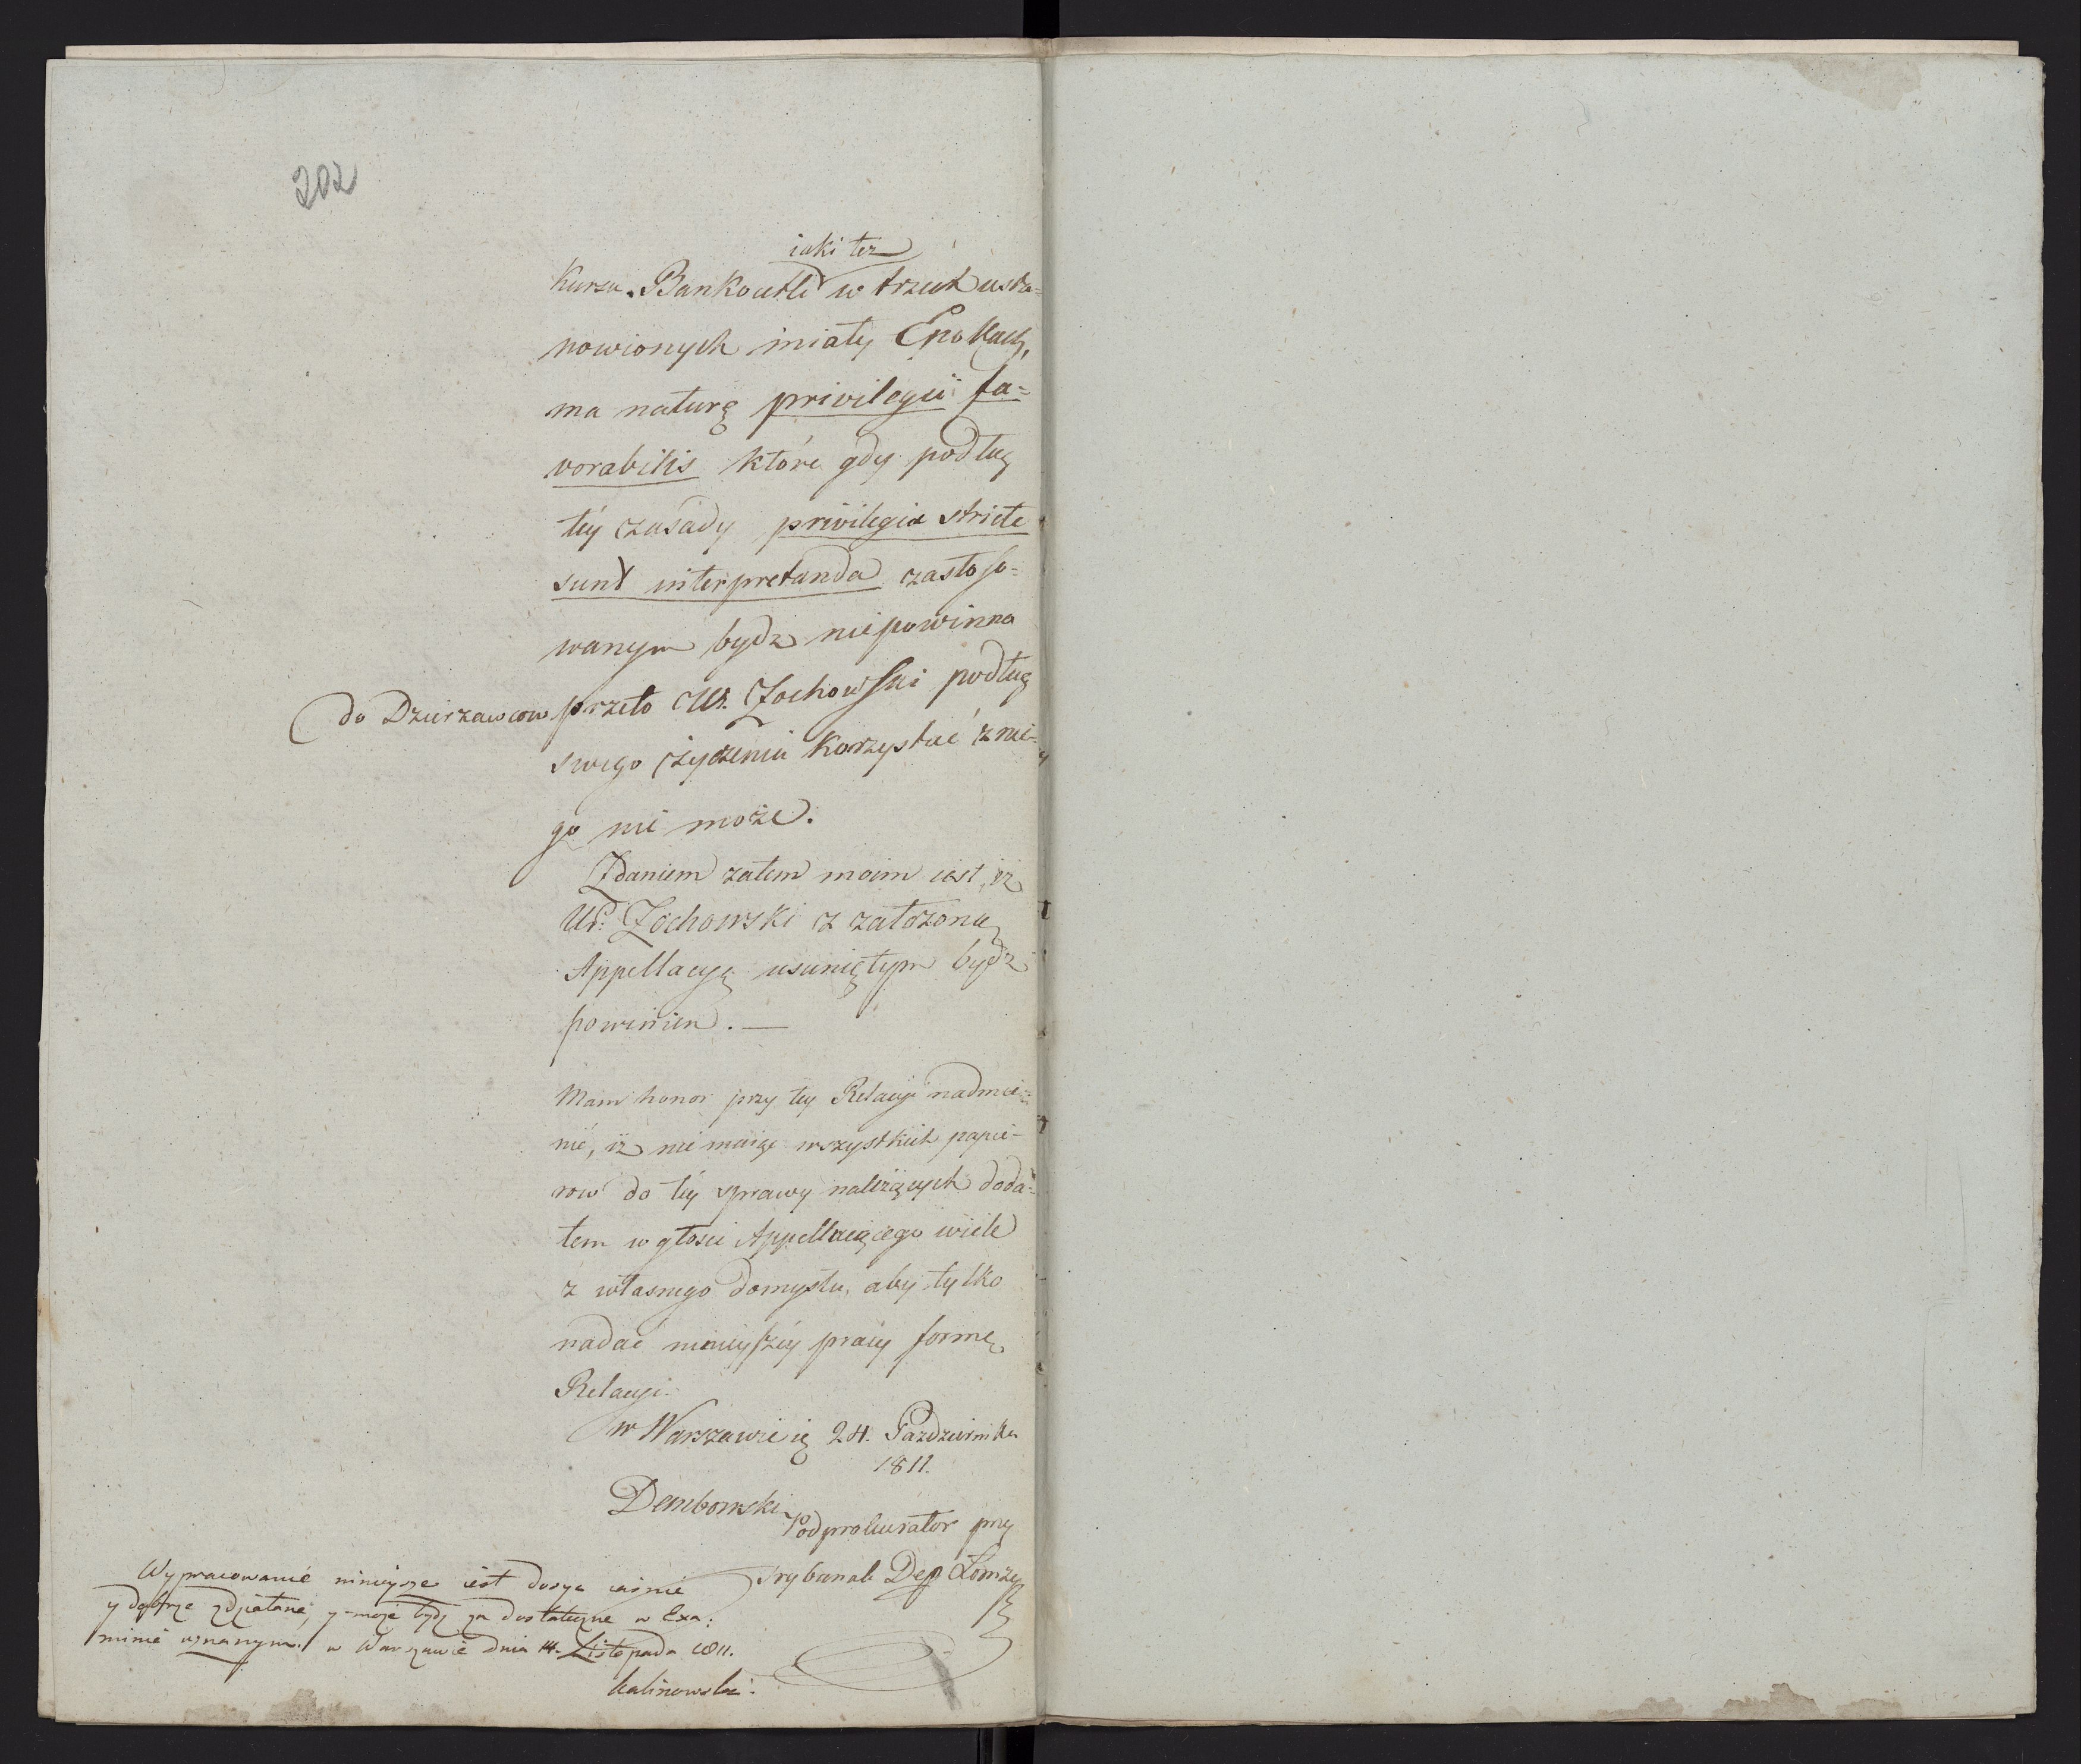 202
iaki też
Kurza Bankocetli w trzech usta=
nowionych miały Epokach,
ma naturę privilegii fa=
vorabilis które gdy podług
téy zasady privilegia stricte
sunt interpretanda zastoso=
wanym bydz niepowinno
do Dzierzawcow przeto Ur. Zochowski podług
swego życzenia korzystać z nie=
go nie może.
Zdaniem zatem moim iest, iż
Ur: Zochowski z założoną
Appellacyą usuniętym bydz
powinien. —
Mam honor przy tey Relacyi nadmie=
nić, iż nie maiąc wszystkich papie=
row do téy sprawy należących doda=
łem w głosie Appelluiącego wiele
z własnego domysłu, aby tylko
nadać ninieyszéy pracy formę
Relacyi.
w Warszawie 24. Pazdziernika
1811.
Dembowski
Podprokurator przy
Trybunale Dep Łomży
Wypracowanie ninieysze iest dosyc iasnie
y dobrze zdziałane, y może bydz za dostateczne w Exa:
minie uznanym. w Warszawie dnia 14. Listopada 1811.
Kalinowski.